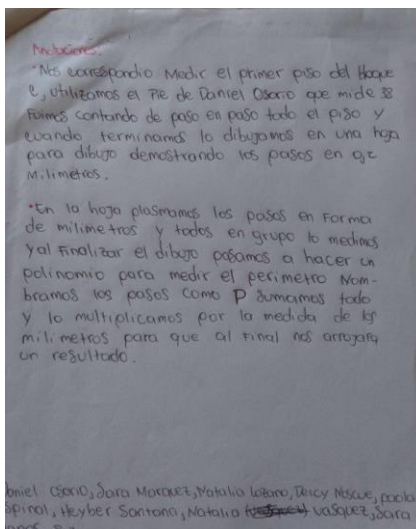 Anotaciones:
•Nos correspondio Medir el primer piso del Bloque
C, utilizamos el Pie de Daniel Osorio que mide 38
Fuimos contando de paso en paso todo el piso y
cuando terminamos lo dibujamos en una hoja
para dibujo demostrando los pasos en
Milimetros.
•En la hoja plasmamos los pasos en Forma
de milimetros y todos en grupo lo medimos
y al Finalizar el dibujo pasamos a hacer un
polinomio para medir el perimetro Nom-
bramos los pasos como P sumamos todo
y lo multiplicamos por la medida de los
milimetros para que al Final nos arrojara
un resultado.
Daniel Osorio, Sara Marquez, Natalia Lozano, Deicy Noscue, paola
Espinal, Heyber Santana, Natalia vasquez, Sara